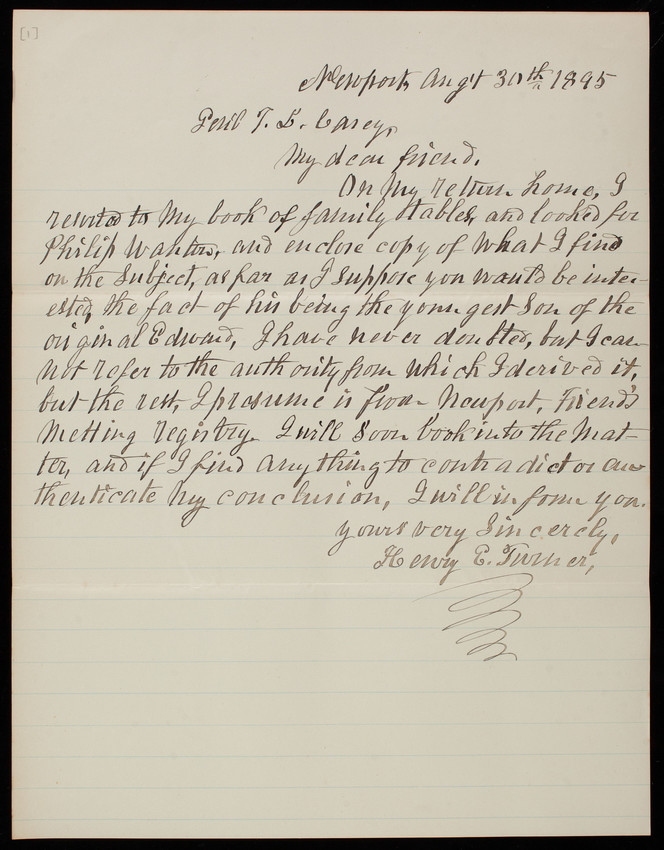 [1]
Newport, Aug't 30th 1895
Genl T. L. Casey,
My dear friend.
On my return home, I
resorted to my book of family tables, and looked for
Philip Wanton, and enclose copy of what I find
on the subject, as far as I suppose you would be inter-
ested, the fact of his being the youngest son of the
original Edward, I have never doubted, but I can
not refer to the authority from which I derived it,
but the rest, I presume is from Newport, Friend's
Meeting registry. I will soon look into the mat-
ter, and if I find anything to contradict or au-
thenticate my conclusion, I will inform you.
yours very sincerely,
Henry E. Turner,